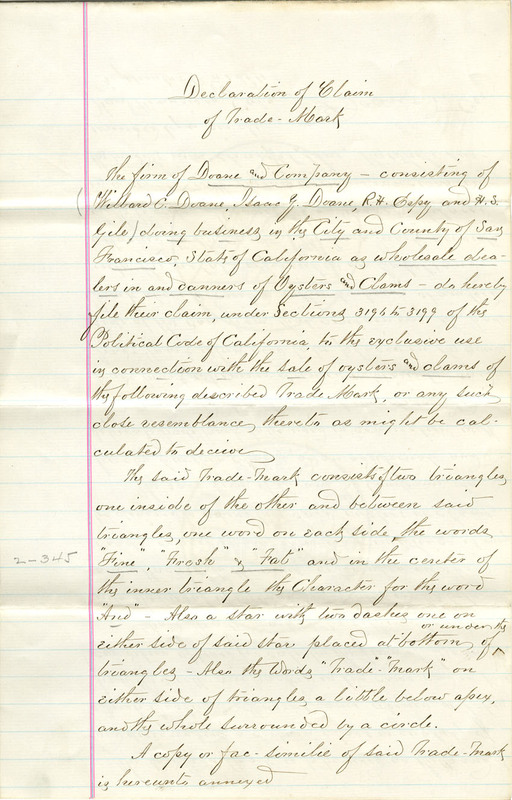 Declaration of Claim
of Trade-Mark
The firm of Doane and Company - consisting of
(Willard C. Doane, Isaac Y. Doane, R.H. Espy and H.S.
Gile) doing business in the City and County of San
Francisco, State of California as wholesale dea-
lers in and canners of Oysters and Clams - do hereby
file their claim, under Sections 3196 to 3199 of the
Political Code of California, to the exclusive use
in connection with the sale of oysters and clams of
the following described Trade Mark, or any such
close resemblance thereto as might be cal-
culated to decieve
The said Trade-Mark consists of two triangles,
one inside of the other and between said
triangles, one word on each side, the words
2-345
"Fine", "Fresh" & "Fat" and in the center of
the inner triangle the Character for the word
"And" - Also a star with two dashes one on
or under the
either side of said star placed at bottom of
triangles - Also the Words "Trade" - "Mark" on
either side of triangles a little below apex,
and the whole surrounded by a circle.
A copy or fac-similie of said Trade-Mark
is hereunto annexed